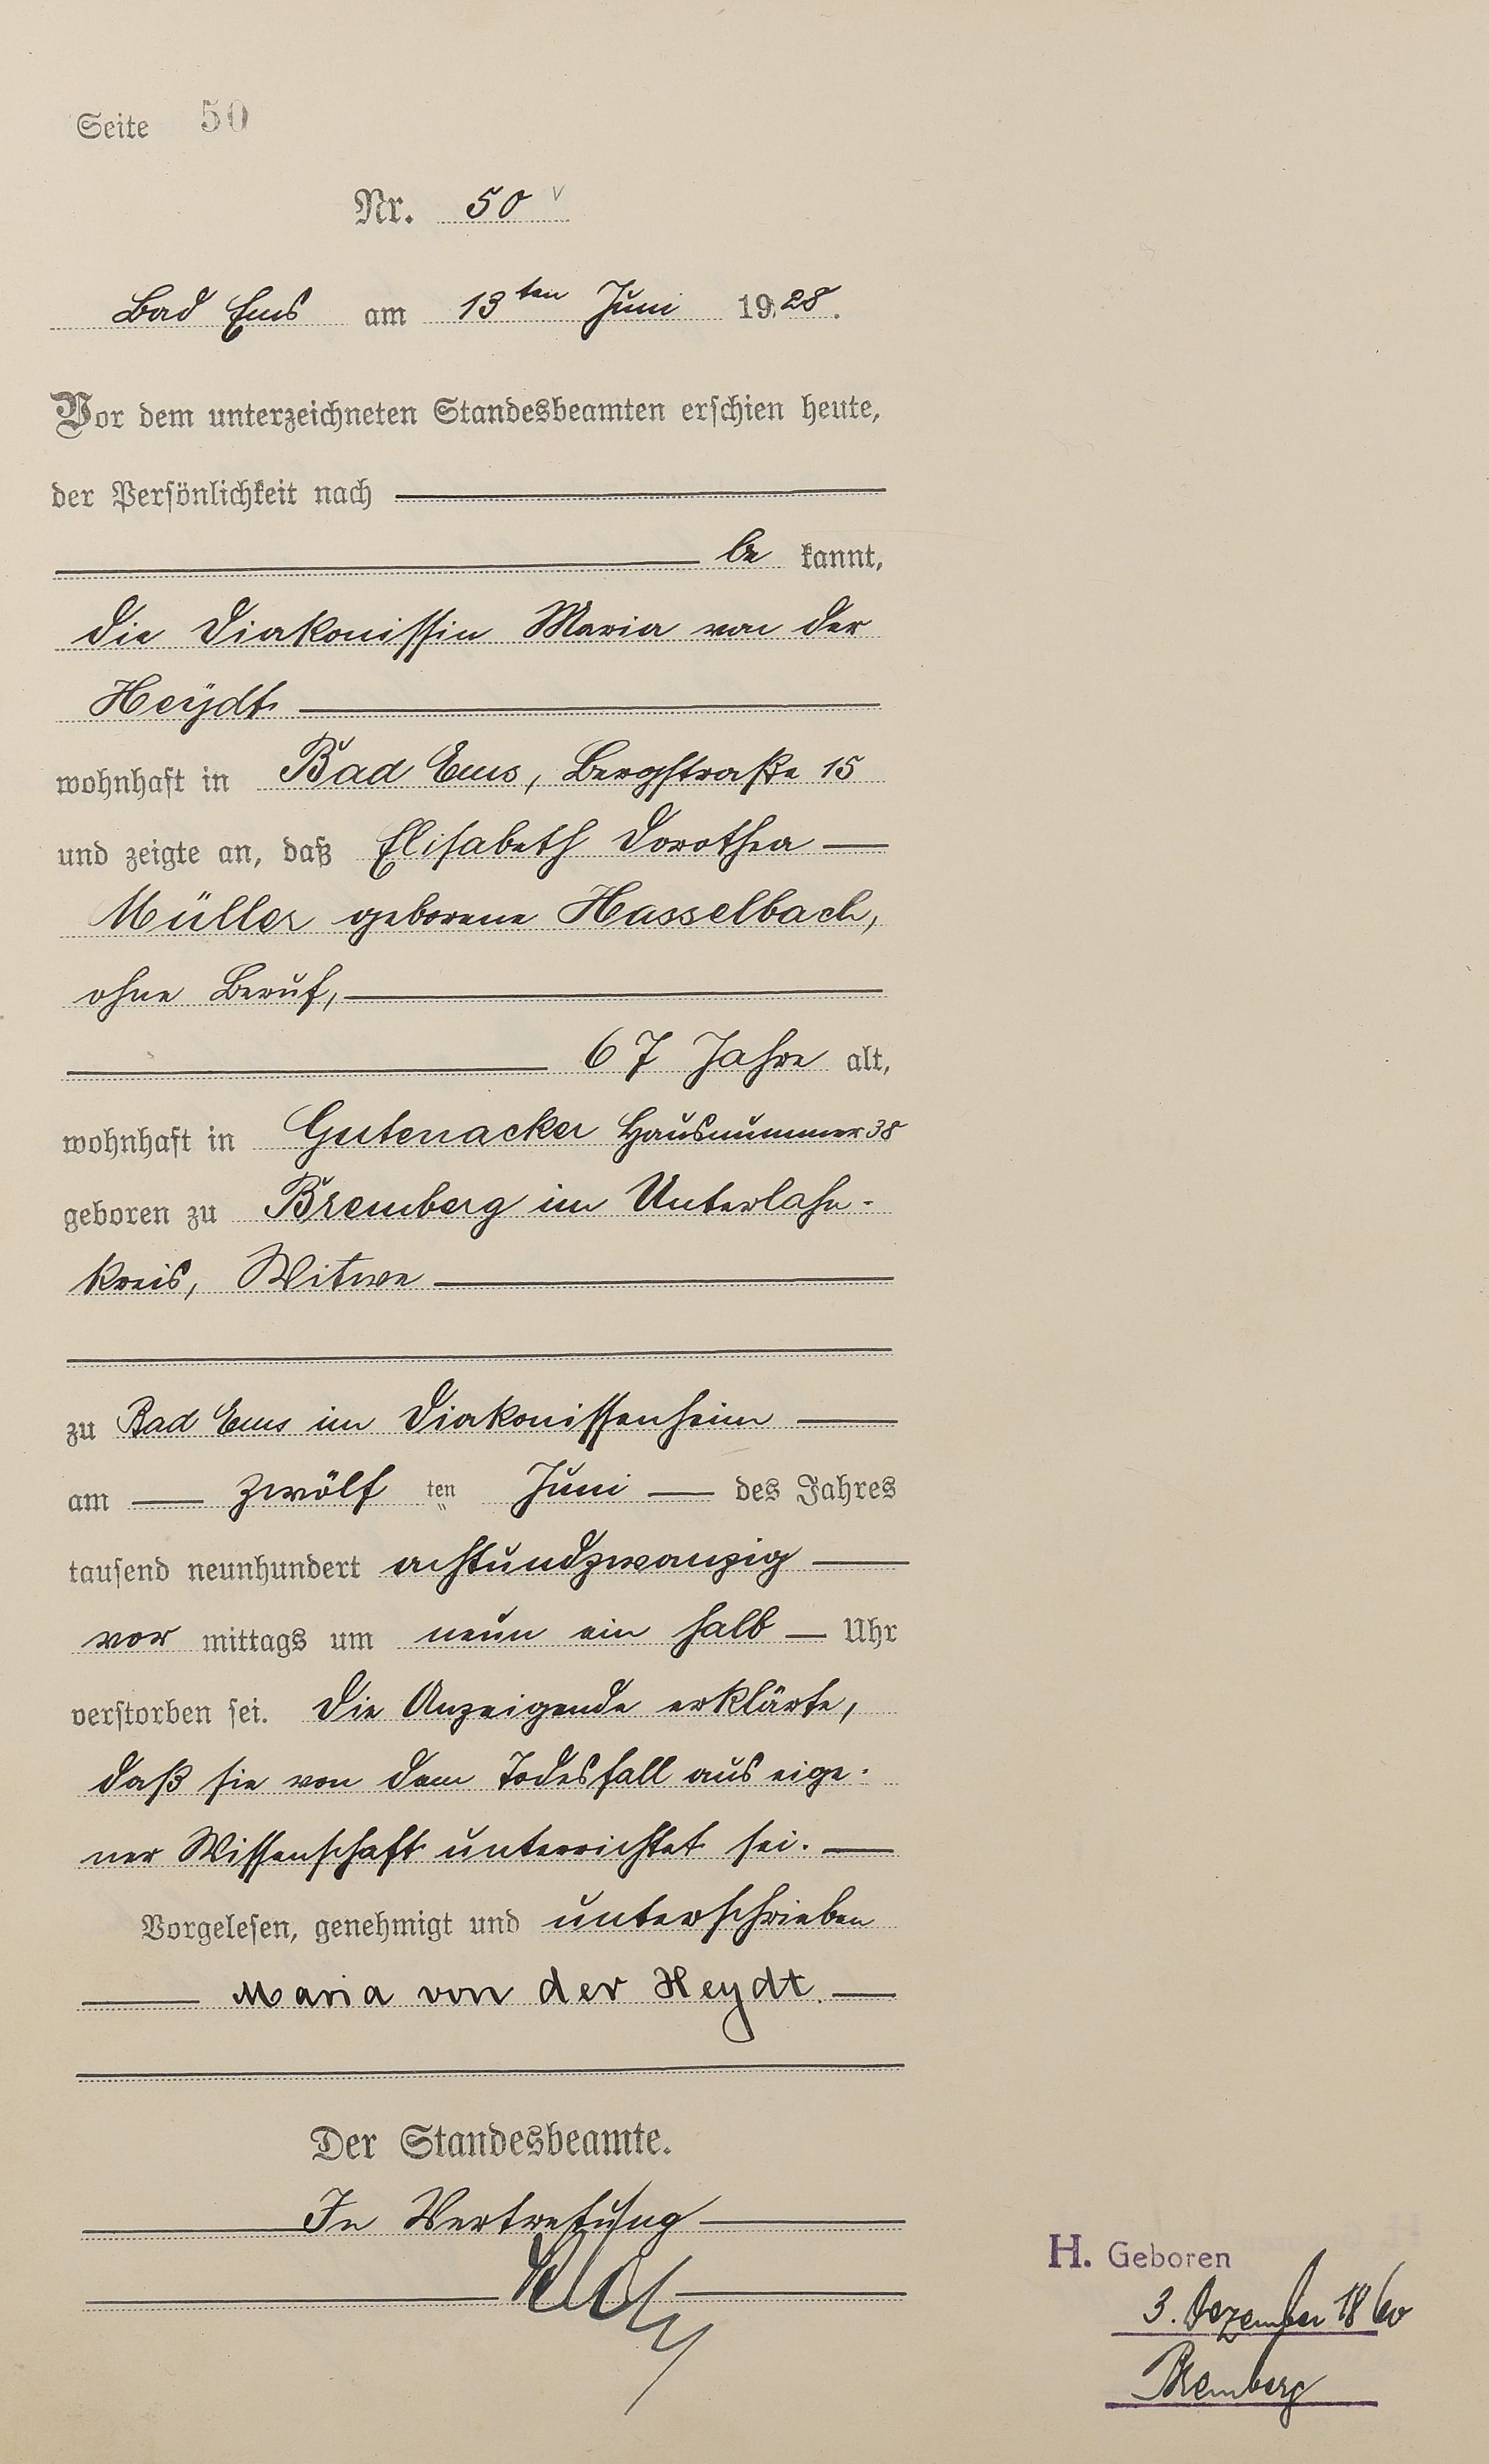 Seite 50
Nr. 50
Bad Ems am 13ten Juni 1928.
Vor dem unterzeichneten Standesbeamten erschien heute,
der Persönlichkeit nach
be kannt,
die Diakonissin Maria von der
Heydt
wohnhaft in Bad Ems, Bergstraße 15
und zeigte an, daß Elisabeth Dorothea
Müller geborene Hasselbach,
ohne Beruf,
67 Jahre alt,
wohnhaft in Gutenacker Hausnummer 38
geboren zu Bremberg im Unterlahn-
kreis, Witwe
zu Bad Ems im Diakonissenheim
am zwölf ten Juni des Jahres
tausend neunhundert achtundzwanzig
vor mittags um neun ein halb Uhr
verstorben sei. Die Anzeigende erklärte,
daß sie von dem Todesfall aus eige-
ner Wissenschaft unterrichtet sei.
Vorgelesen, genehmigt und unterschrieben
Maria von der Heydt.
Der Standesbeamte.
In Vertretung
H. Geboren
3. Dezember 1860
Bremberg